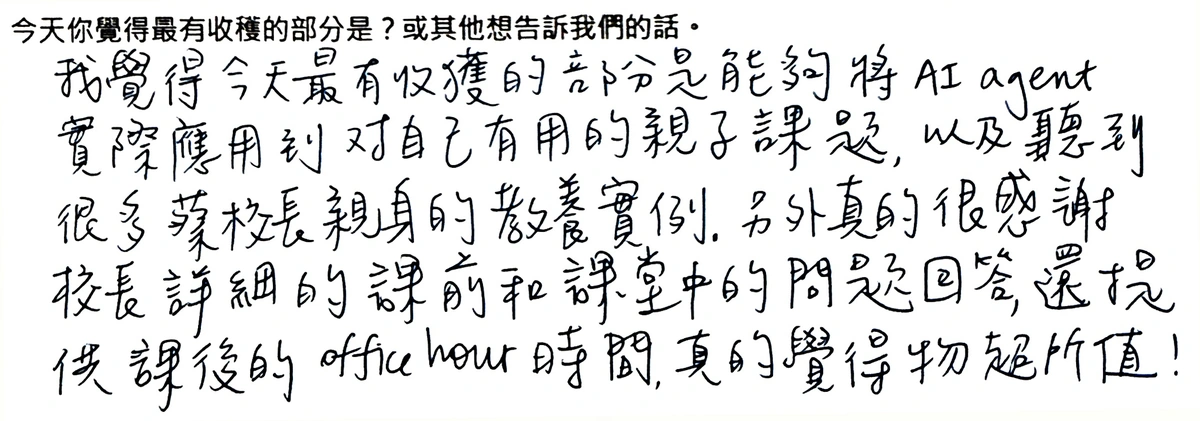 今天你覺得最有收穫的部分是？或其他想告訴我們的話。
我覺得今天最有收獲的部分是能夠將 AI agent
實際應用到对自己有用的親子課題, 以及聽到
很多蔡校長親身的教養實例. 另外真的很感謝
校長詳細的課前和課堂中的問題回答, 還提
供課後的 office hour 時間, 真的覺得物超所值!